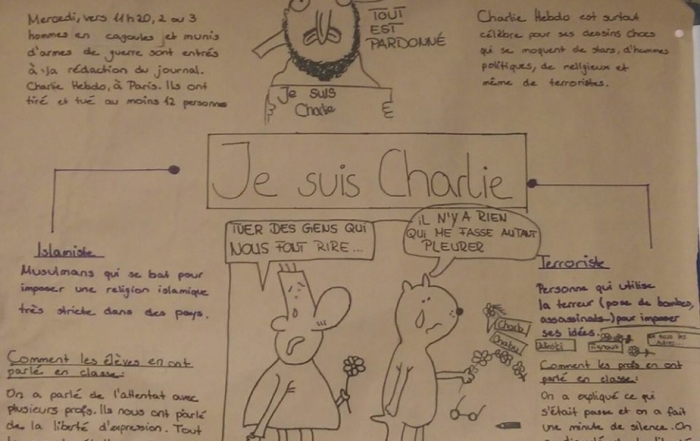 Mercredi, vers 11h20, 2 ou 3
hommes en cagoules et munis
d'armes de guerre sont entrés
à la rédaction du journal.
Charlie Hebdo, à Paris. Ils ont
tiré et tué au moins 12 personnes
TOUT
EST
PARDONNÉ
Je suis
Charlie
Charlie Hebdo est surtout
célèbre pour ses dessins chocs
qui se moquent de stars, d'hommes
politiques, de religieux et
même de terroristes.
Je suis Charlie
TUER DES GENS QUI
NOUS FONT RIRE...
IL N'Y A RIEN
QUI ME FASSE AUTANT
PLEURER
Islamiste
Musulmans qui se bat pour
imposer une religion islamique
très stricte dans des pays.
Comment les élèves en ont
parlé en classe:
On a parlé de l'attentat avec
plusieurs profs. Ils nous ont parlé
de la liberté d'expression. Tout
Terroriste
Personne qui utilise
la terreur (pose de bombes,
assassinats) pour imposer
ses idées.
Charb
Cabu
Comment les profs en ont
parlé en classe:
On a expliqué ce qui
s'était passé et on a fait
une minute de silence. On